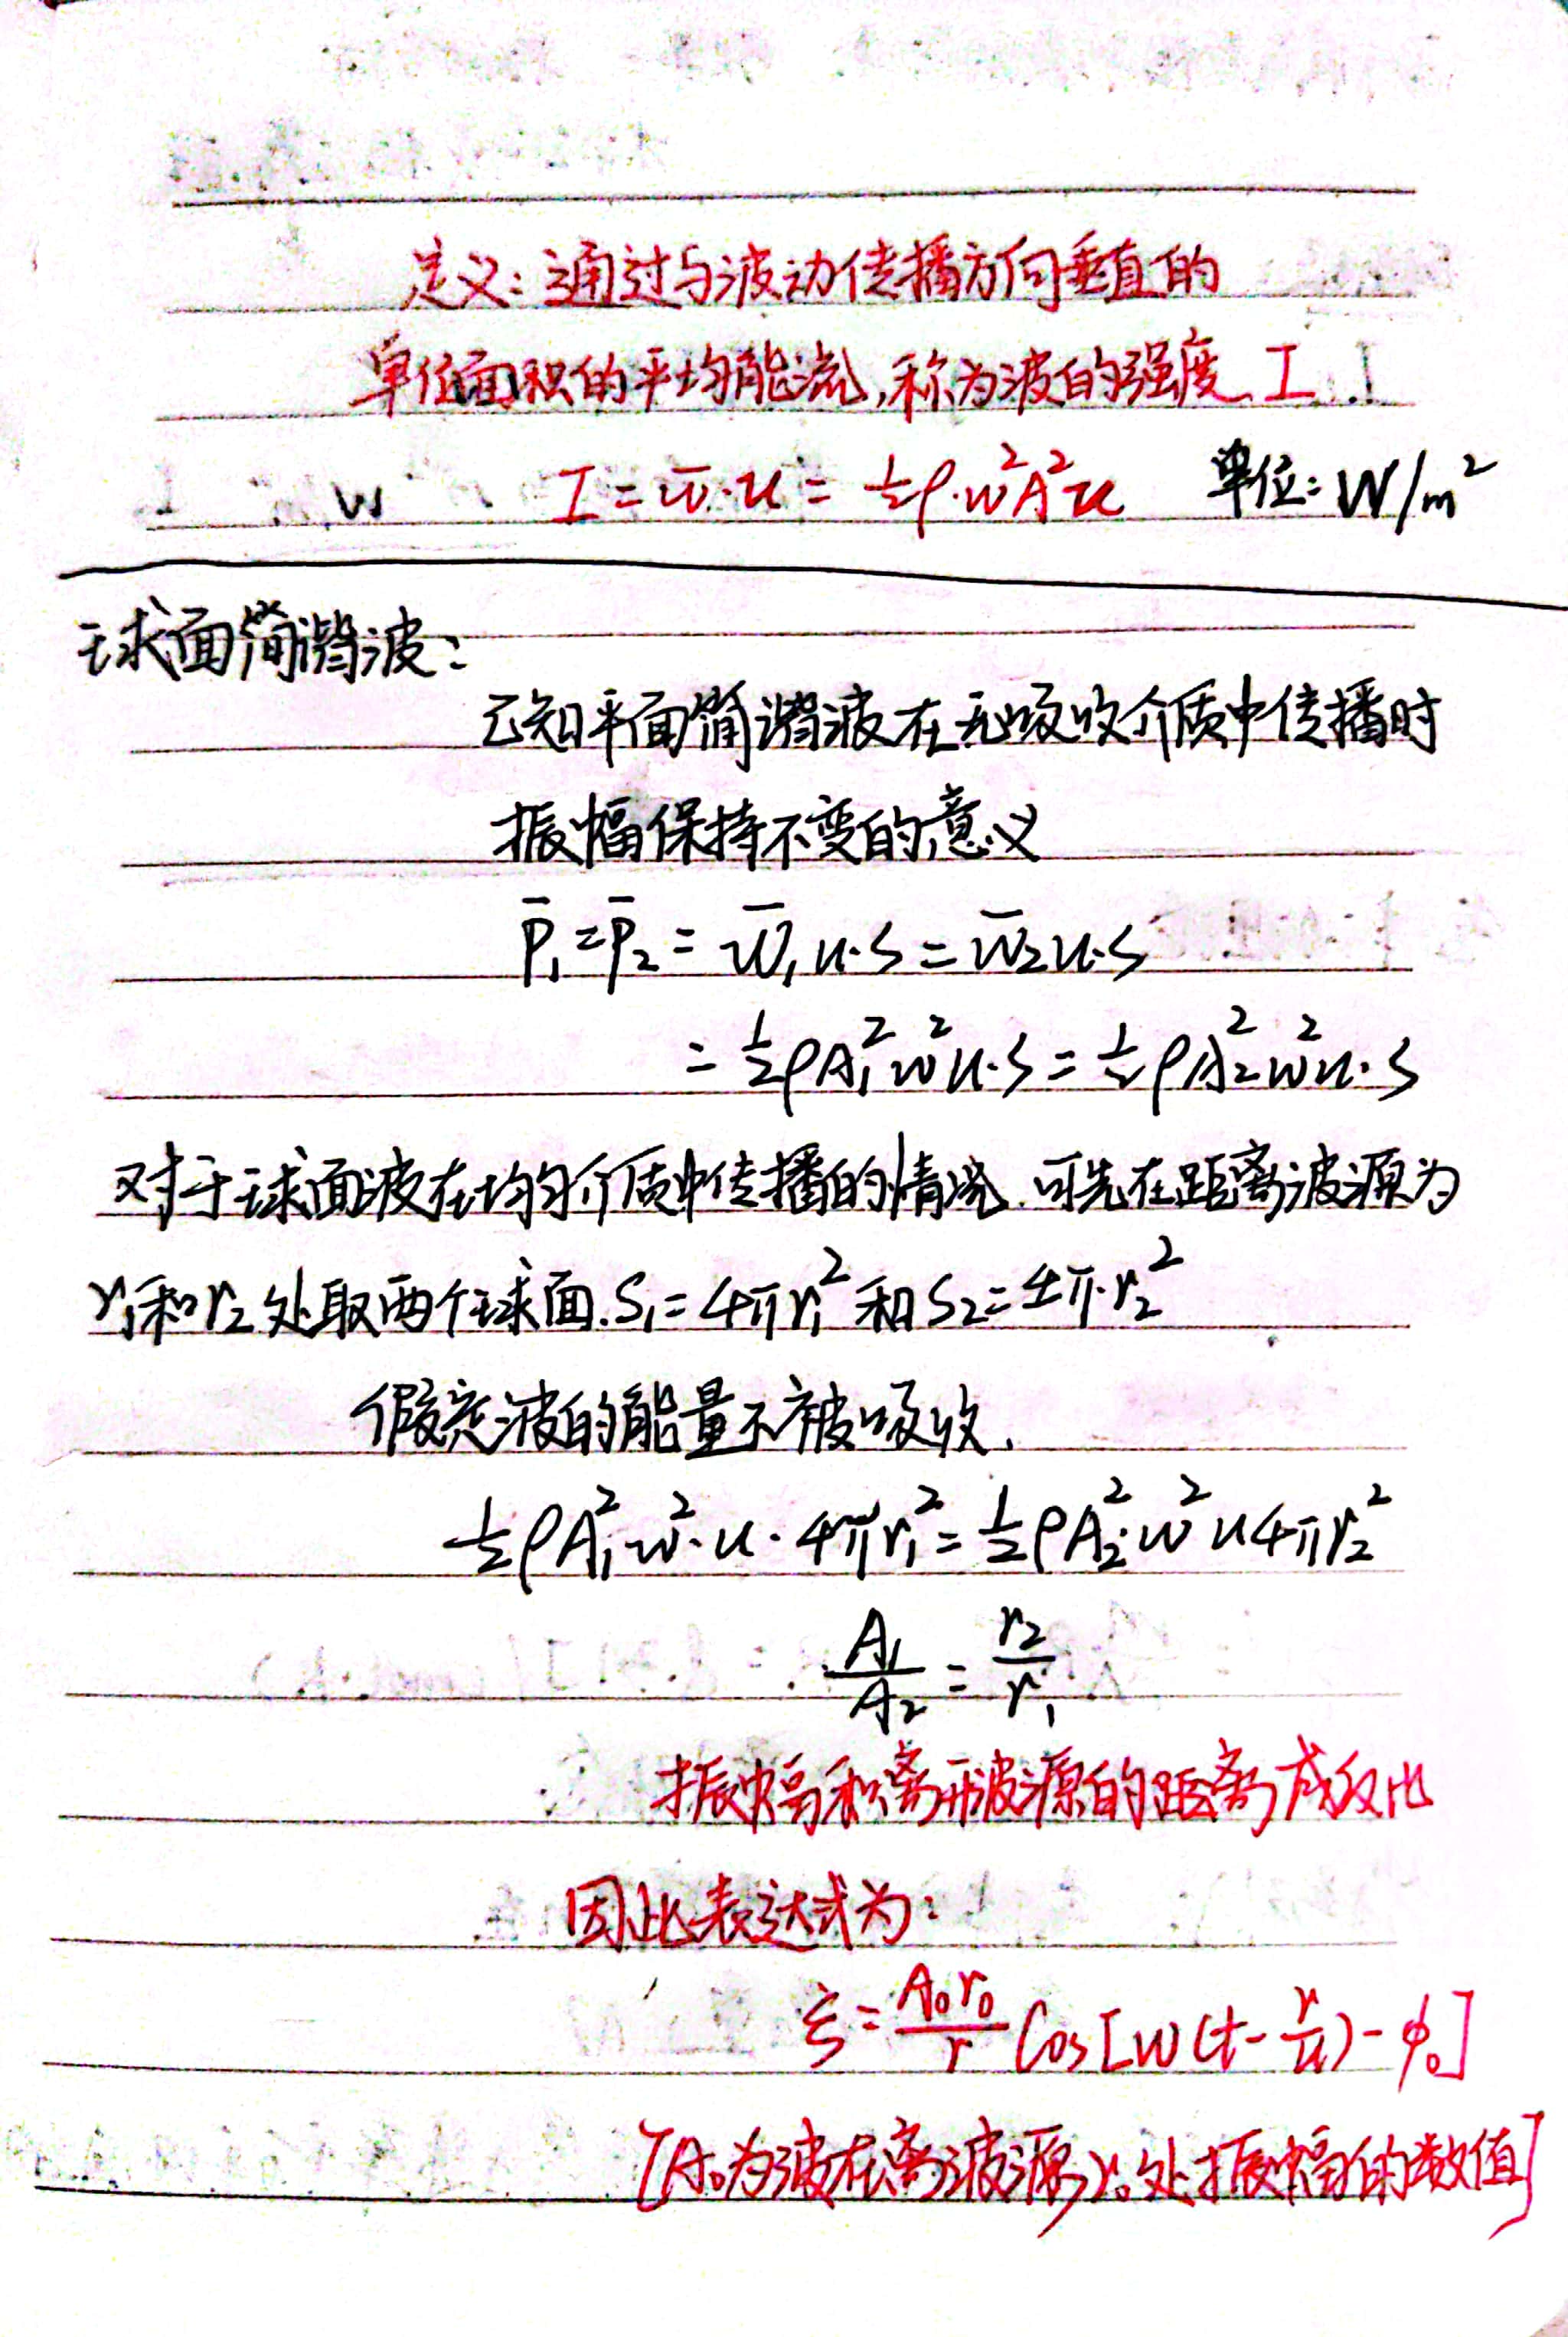 定义：通过与波动传播方向垂直的
单位面积的平均能流,称为波的强度 I
w I = w̄·u = ½ρ·w²A²u 单位：W/m²
球面简谐波：
已知平面简谐波在无吸收介质中传播时
振幅保持不变的意义
P̄₁=P̄₂ = w̄₁u·S = w̄₂u·S
= ½ρA₁²w²u·S = ½ρA₂²w²u·S
对于球面波在均匀介质中传播的情况.可先在距离波源为
r₁和r₂处取两个球面.S₁=4πr₁²和S₂=4π·r₂²
假定波的能量不被吸收.
½ρA₁²w²·u·4πr₁² = ½ρA₂²·w²u4πr₂²
A₁/A₂ = r₂/r₁
振幅和离开波源的距离成反比
因此表达式为：
ξ = A₀r₀/r Cos[w(t-r/u)-φ₀]
[A₀为波在离波源r₀处振幅的数值]